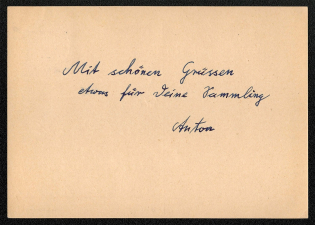 Mit schönen Grüssen
etwas für Deine Sammlung
Anton